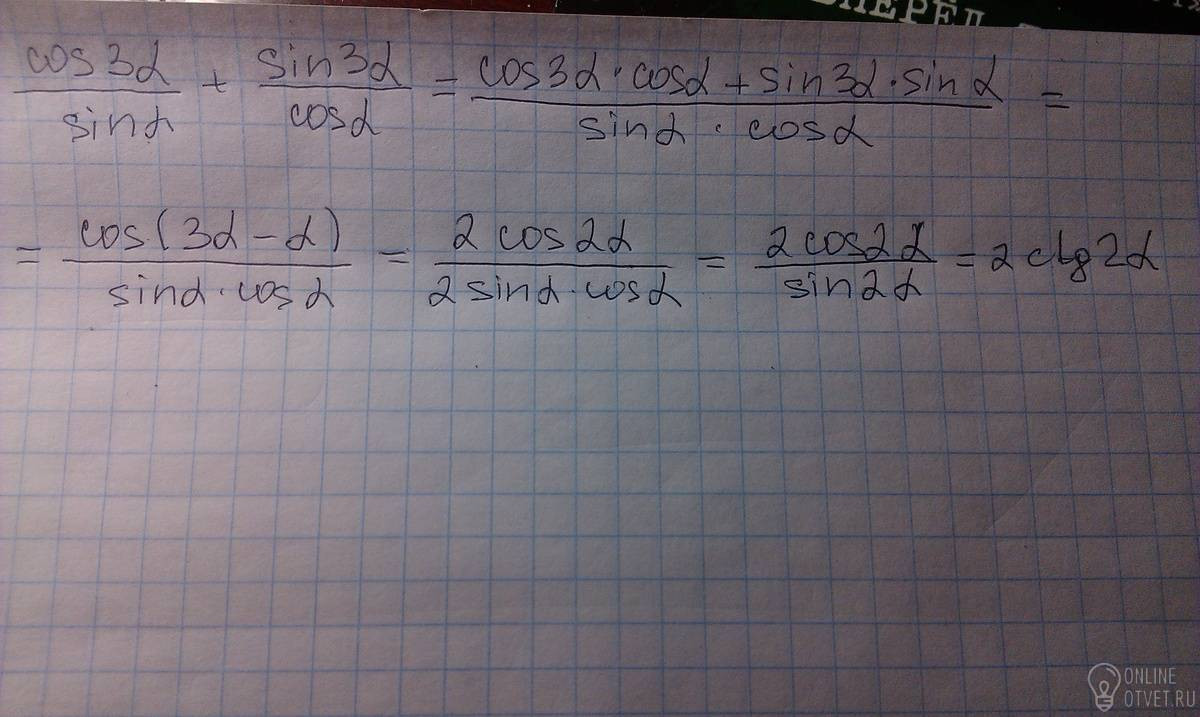 ВПЕРЁД
cos3α/sinα + sin3α/cosα = cos3α·cosα + sin3α·sinα/sinα·cosα =
= cos(3α-α)/sinα·cosα = 2cos2α/2sinα·cosα = 2cos2α/sin2α = 2ctg2α
ONLINE
OTVET.RU